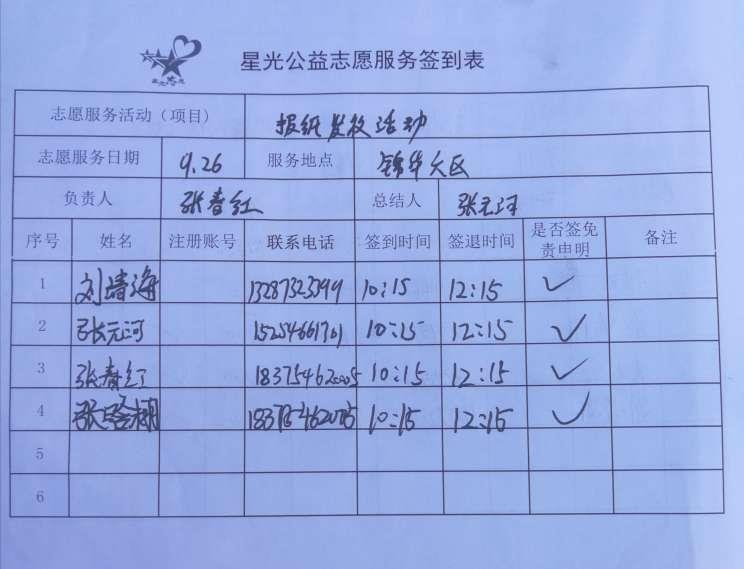 星光公益志愿服务签到表
志愿服务活动（项目） 报纸发放活动
志愿服务日期 9.26 服务地点 锦华大区
负责人 张春红 总结人 张元河
序号 姓名 注册账号 联系电话 签到时间 签退时间 是否签免责申明 备注
1 刘靖海 13287323399 10:15 12:15 ✓
2 张元河 15254661701 10:15 12:15 ✓
3 张春红 10:15 12:15 ✓
4 10:15 12:15 ✓
5
6